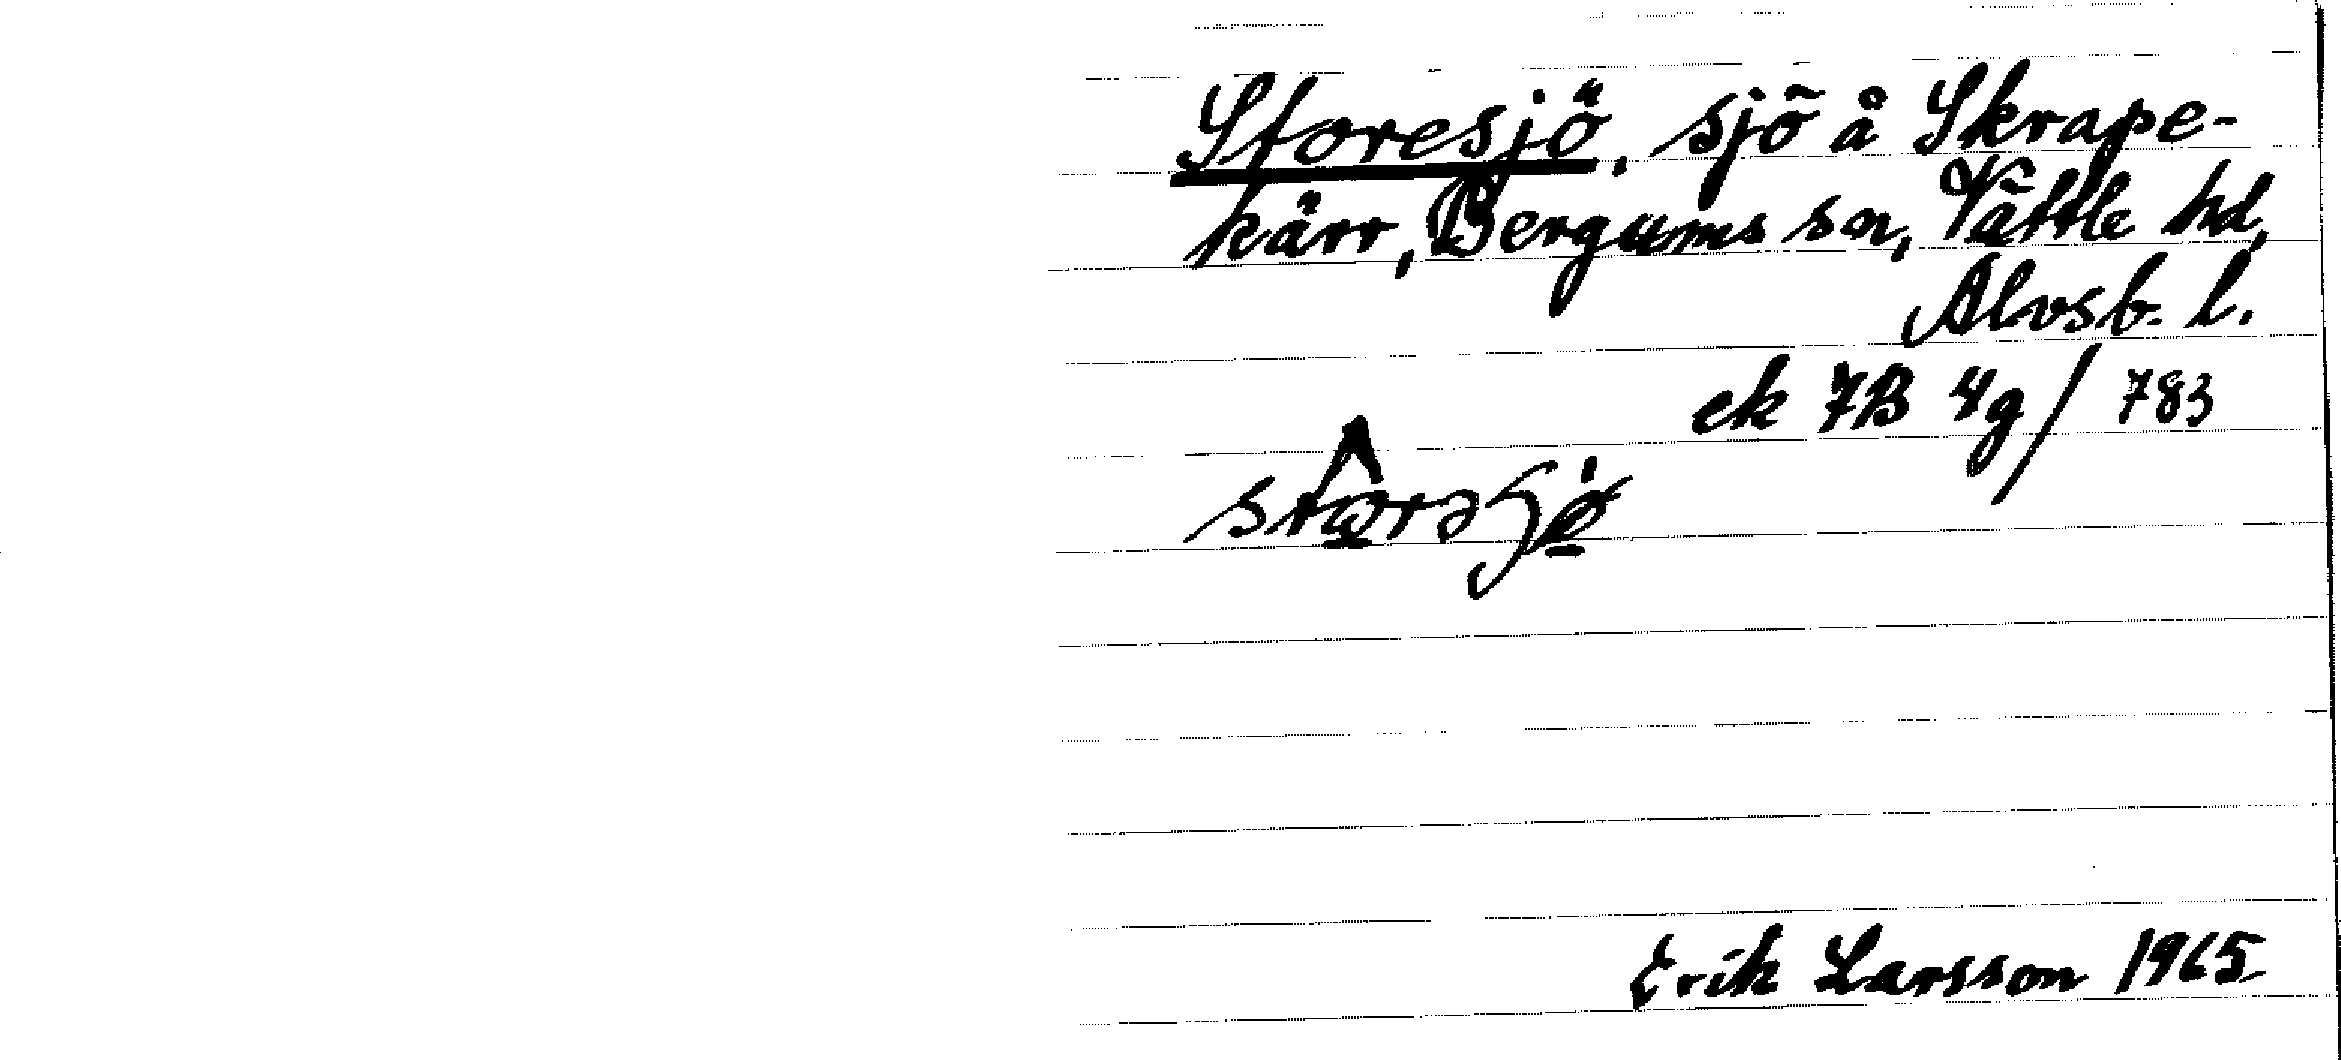 Storesjö, sjö å Skrape-
kärr, Bergums sn, Vättle hd,
Älvsb. l.
ek 7B 4g/783
Erik Larsson 1965